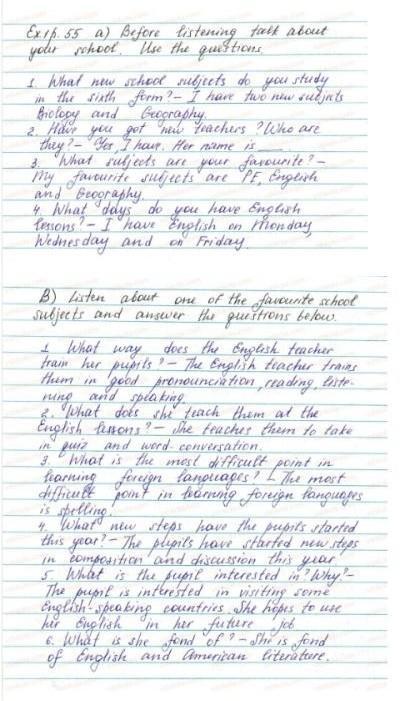 Ex 1 p. 55 a) Before listening talk about
your school. Use the questions.
1. What new school subjects do you study
in the sixth form? – I have two new subjects
Biology and Geography.
2. Have you got new teachers? Who are
they? – Yes, I have. Her name is ___
3. What subjects are your favourite? –
My favourite subjects are PE, English
and Geography.
4. What days do you have English
lessons? – I have English on Monday,
Wednesday and on Friday.
B) Listen about one of the favourite school
subjects and answer the questions below.
1. What way does the English teacher
train her pupils? – The English teacher trains
them in good pronounciation, reading, liste-
ning and speaking.
2. What does she teach them at the
English lessons? – She teaches them to take
in quiz and word-conversation.
3. What is the most difficult point in
learning foreign languages? – The most
difficult point in learning foreign languages
is spelling.
4. What new steps have the pupils started
this year? – The pupils have started new steps
in composition and discussion this year.
5. What is the pupil interested in? Why? –
The pupil is interested in visiting some
English-speaking countries. She hopes to use
her English in her future job
6. What is she fond of? – She is fond
of English and American literature.